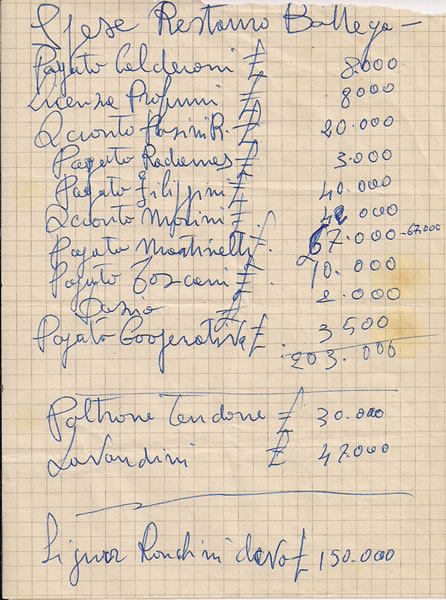 Spese Restauro Bottega —
Pagato Calderoni £ 8.000
Licenza Profumi £ 8000
Acconto Pasini R. £ 20.000
Pagato Radames £ 3.000
Pagato Filippini £ 40.000
Acconto Morini £ 42 000
Pagato Martinelli £. 67.000 - 67.000
Pagato Tosconi £. 10.000
Dazio £ 2.000
Pagato Cooperativa £. 3 500
203.000
Poltrone Tendone £ 30.000
Lavandini £ 47.000
Signor Ronchini devo £ 150.000